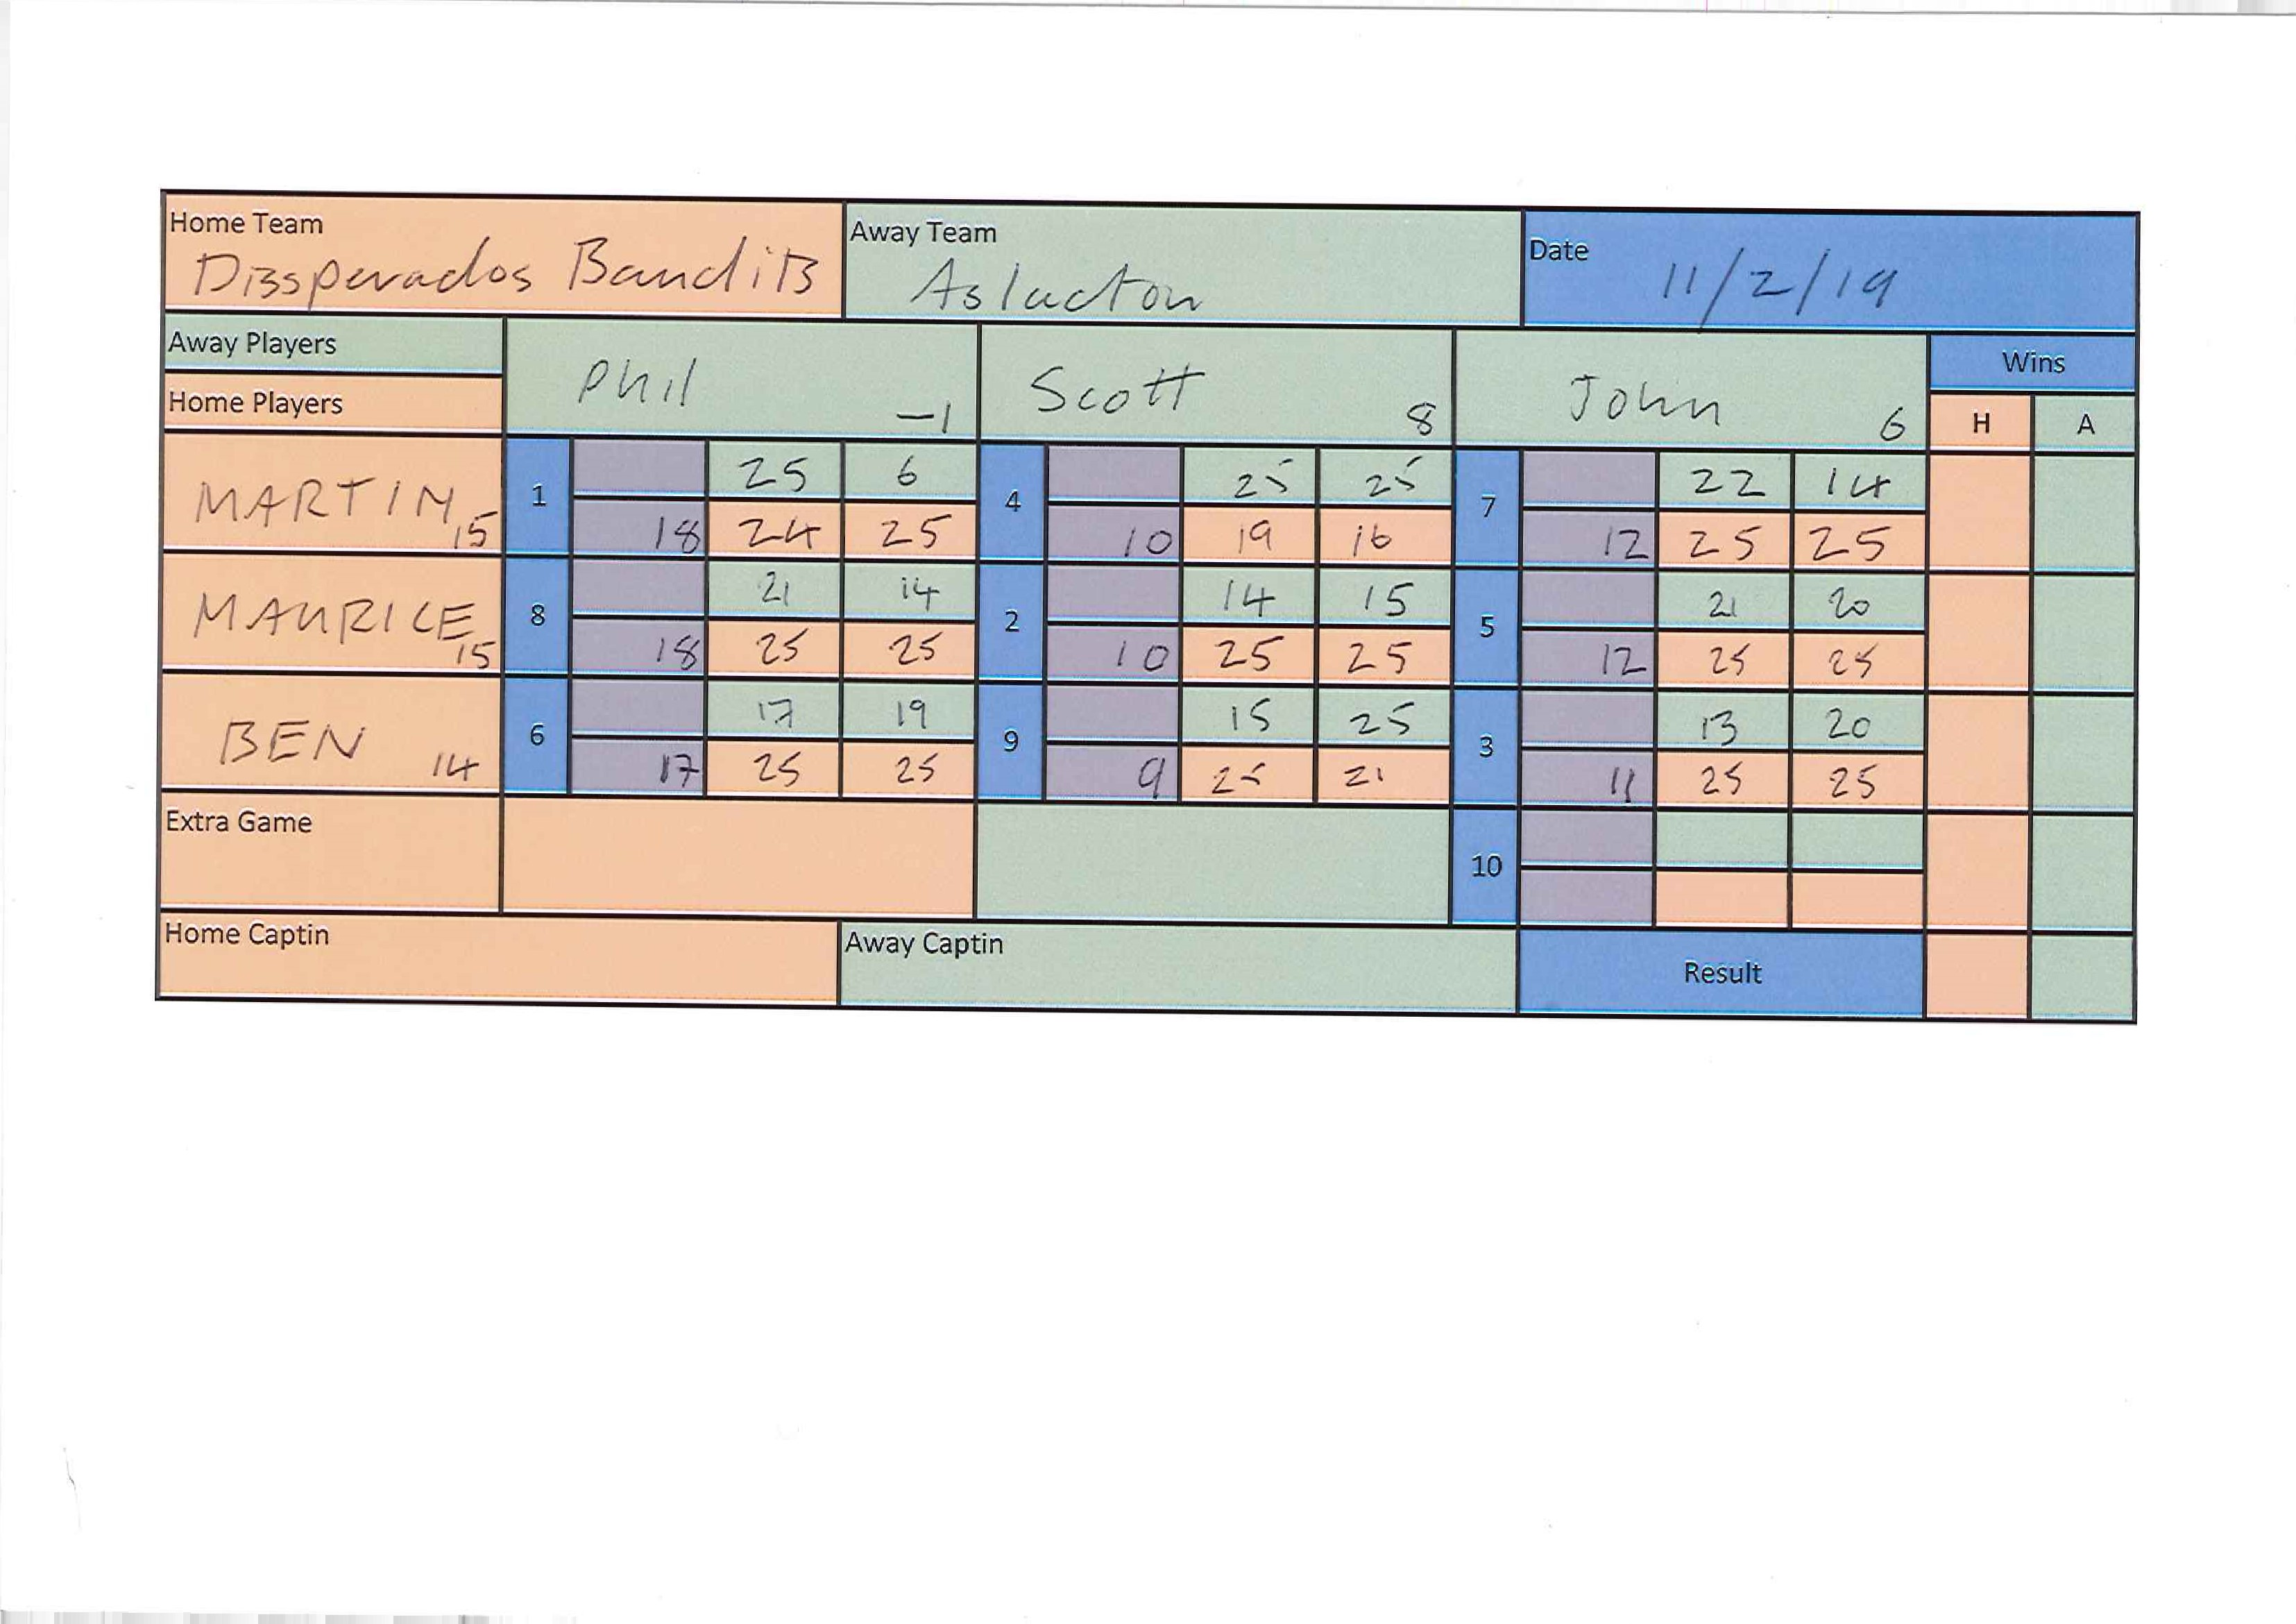 Home Team
Disspervados Bandits
Away Team
Aslacton
Date
11/2/19
Away Players
Home Players
Phil -1
Scott 8
John 6
Wins
H A
MARTIN 15
1 25 6
18 24 25
4 25 25
10 19 16
7 22 14
12 25 25
MAURICE 15
8 21 14
18 25 25
2 14 15
10 25 25
5 21 20
12 25 25
BEN 14
6 17 19
17 25 25
9 15 25
9 25 21
3 13 20
11 25 25
Extra Game
10
Home Captin
Away Captin
Result